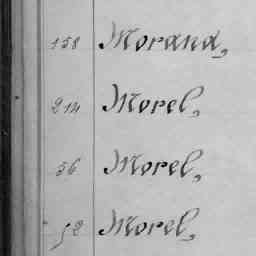 158 Morand,
214 Morel,
56 Morel,
52 Morel,